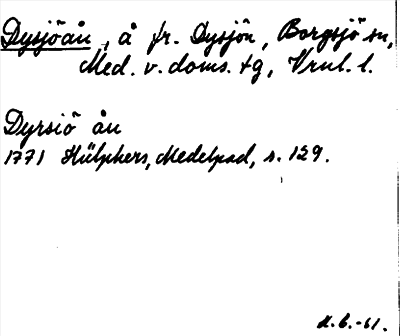 Dysjöån, å fr. Dysjön, Borgsjö sn,
Med. v. doms. tg, Vrnl. l.
Dyrsiö ån
1771 Hülphers, Medelpad, s. 129.
d. b. -61.